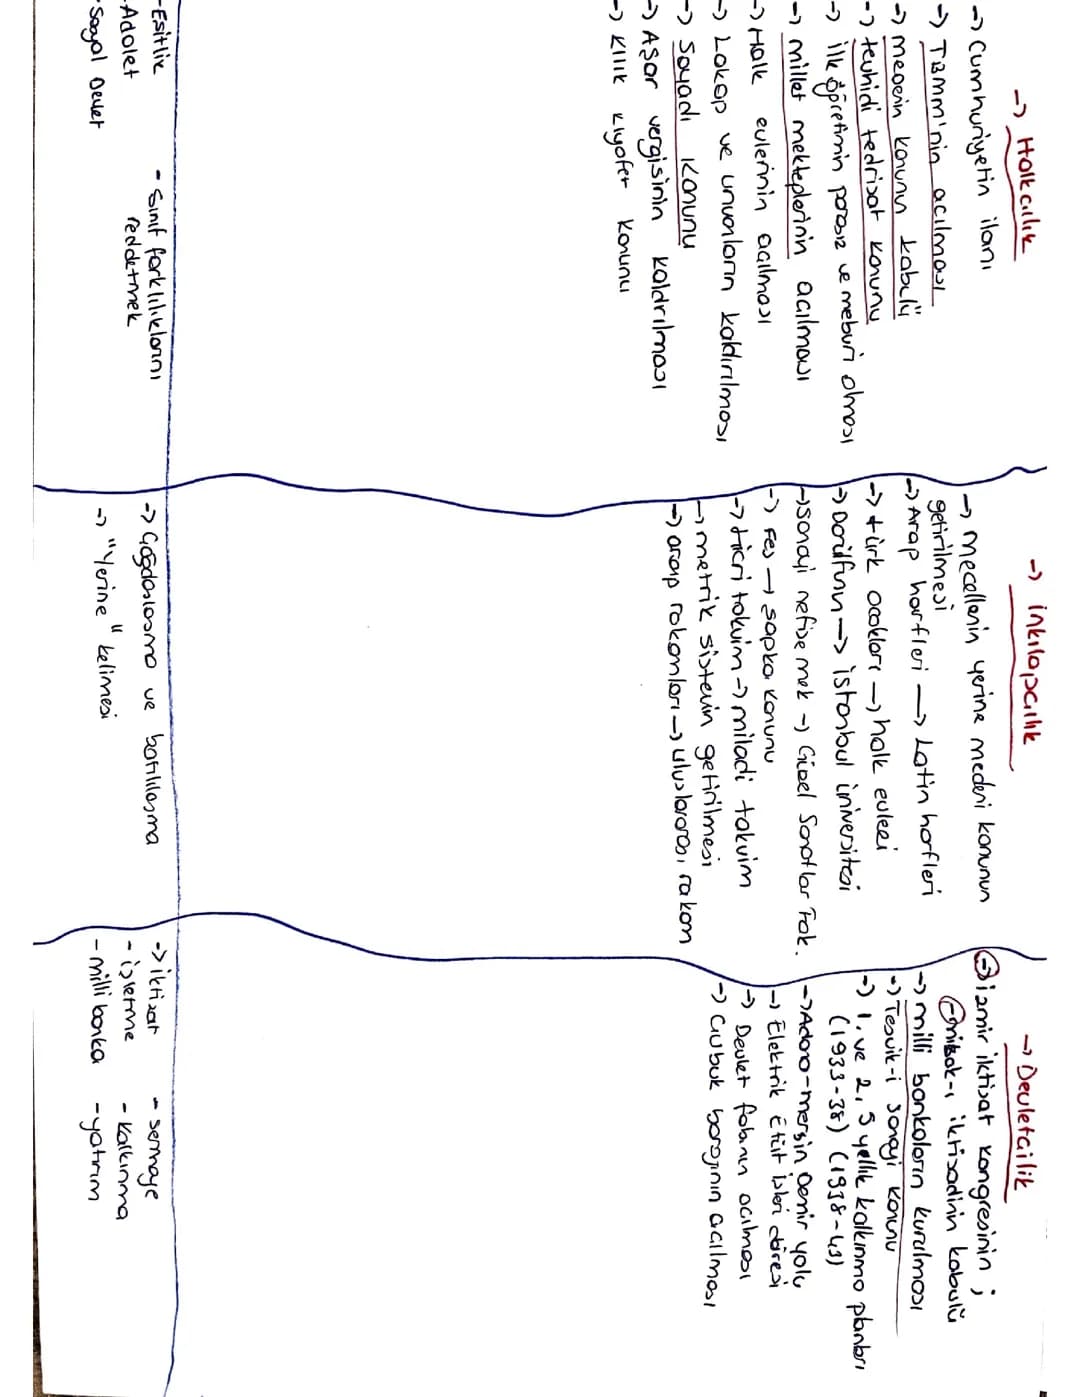 -> Halkcılık
-> Cumhuriyetin ilanı
-> TBMM'nin açılması
-> medenin kanunun kabulü
-> tevhidi tedrisat kanunu
-> ilk öğretimin parasız ve meburi olması
-> millet mekteplerinin açılması
-> Halk evlerinin açılması
-> Lakap ve unvanların kaldırılması
-> Soyadı Kanunu
-> Aşar vergisinin kaldırılması
-> Kılık Kıyafet Kanunu
- Eşitlik
- Adalet
- Sosyal Devlet
- Sınıf farklılıklarını
reddetmek
-> inkılapcılık
-> mecellenin yerine medeni kanunun
getirilmesi
-> Arap harfleri -> Latin harfleri
-> türk ocakları -> halk evleri
-> Darülfünun -> istanbul üniversitesi
-> Sanayi nefise mek -> Güzel Sanatlar Fak.
-> Fes -> şapka kanunu
-> Hicri takvim -> miladi takvim
-> metrik sistemin getirilmesi
-> arap rakamları -> uluslararası rakam
-> Çağdaşlaşma ve batılılaşma
-> "Yerine" kelimesi
-> Devletcilik
-> izmir iktisat kongresinin ;
- misak-ı iktisadinin kabulü
-> milli bankaların kurulması
-> Teşvik-i Sanayi Kanunu
-> 1. ve 2, 5 yıllık kalkınma planları
(1933-38) (1938-43)
-> Adana-mersin Demir yolu
-> Elektrik Etüt işleri dairesi
-> Devlet açılması
-> Çubuk barajının açılması
-> iktisat
- işletme
- milli banka
- sermaye
- Kalkınma
- yatırım